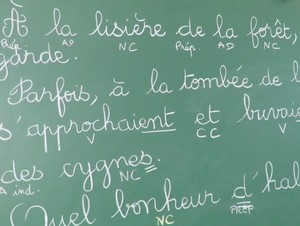 À la lisière de la forêt,
Prép. AD NC Prép. AD NC
garde.
Parfois, à la tombée de l
s'approchaient et buvaie
V CC V
des cygnes.
A ind. NC
Quel bonheur d'hal
NC PRÉP